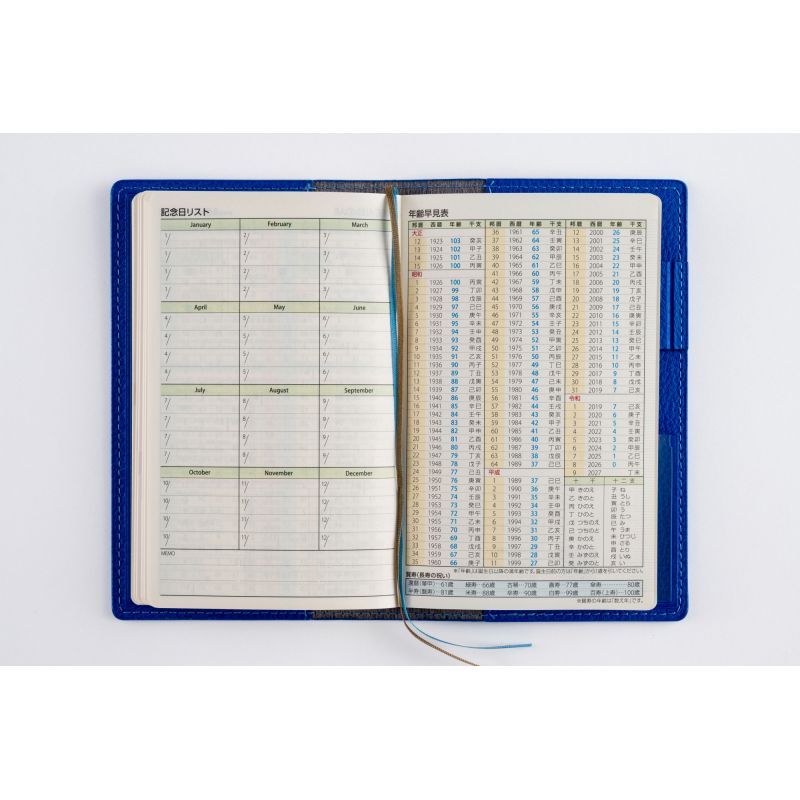 記念日リスト
January February March
1/ 2/ 3/
1/ 2/ 3/
1/ 2/ 3/
1/ 2/ 3/
April May June
4/ 5/ 6/
4/ 5/ 6/
4/ 5/ 6/
4/ 5/ 6/
July August September
7/ 8/ 9/
7/ 8/ 9/
7/ 8/ 9/
7/ 8/ 9/
October November December
10/ 11/ 12/
10/ 11/ 12/
10/ 11/ 12/
10/ 11/ 12/
MEMO
年齢早見表
邦暦 西暦 年齢 干支
大正
12 1923 103 癸亥
13 1924 102 甲子
14 1925 101 乙丑
15 1926 100 丙寅
昭和
1 1926 100 丙寅
2 1927 99 丁卯
3 1928 98 戊辰
4 1929 97 己巳
5 1930 96 庚午
6 1931 95 辛未
7 1932 94 壬申
8 1933 93 癸酉
9 1934 92 甲戌
10 1935 91 乙亥
11 1936 90 丙子
12 1937 89 丁丑
13 1938 88 戊寅
14 1939 87 己卯
15 1940 86 庚辰
16 1941 85 辛巳
17 1942 84 壬午
18 1943 83 癸未
19 1944 82 甲申
20 1945 81 乙酉
21 1946 80 丙戌
22 1947 79 丁亥
23 1948 78 戊子
24 1949 77 己丑
25 1950 76 庚寅
26 1951 75 辛卯
27 1952 74 壬辰
28 1953 73 癸巳
29 1954 72 甲午
30 1955 71 乙未
31 1956 70 丙申
32 1957 69 丁酉
33 1958 68 戊戌
34 1959 67 己亥
35 1960 66 庚子
邦暦 西暦 年齢 干支
36 1961 65 辛丑
37 1962 64 壬寅
38 1963 63 癸卯
39 1964 62 甲辰
40 1965 61 乙巳
41 1966 60 丙午
42 1967 59 丁未
43 1968 58 戊申
44 1969 57 己酉
45 1970 56 庚戌
46 1971 55 辛亥
47 1972 54 壬子
48 1973 53 癸丑
49 1974 52 甲寅
50 1975 51 乙卯
51 1976 50 丙辰
52 1977 49 丁巳
53 1978 48 戊午
54 1979 47 己未
55 1980 46 庚申
56 1981 45 辛酉
57 1982 44 壬戌
58 1983 43 癸亥
59 1984 42 甲子
60 1985 41 乙丑
61 1986 40 丙寅
62 1987 39 丁卯
63 1988 38 戊辰
64 1989 37 己巳
平成
1 1989 37 己巳
2 1990 36 庚午
3 1991 35 辛未
4 1992 34 壬申
5 1993 33 癸酉
6 1994 32 甲戌
7 1995 31 乙亥
8 1996 30 丙子
9 1997 29 丁丑
10 1998 28 戊寅
11 1999 27 己卯
邦暦 西暦 年齢 干支
12 2000 26 庚辰
13 2001 25 辛巳
14 2002 24 壬午
15 2003 23 癸未
16 2004 22 甲申
17 2005 21 乙酉
18 2006 20 丙戌
19 2007 19 丁亥
20 2008 18 戊子
21 2009 17 己丑
22 2010 16 庚寅
23 2011 15 辛卯
24 2012 14 壬辰
25 2013 13 癸巳
26 2014 12 甲午
27 2015 11 乙未
28 2016 10 丙申
29 2017 9 丁酉
30 2018 8 戊戌
31 2019 7 己亥
令和
1 2019 7 己亥
2 2020 6 庚子
3 2021 5 辛丑
4 2022 4 壬寅
5 2023 3 癸卯
6 2024 2 甲辰
7 2025 1 乙巳
8 2026 0 丙午
9 2027 丁未
十干 十二支
甲 きのえ
乙 きのと
丙 ひのえ
丁 ひのと
戊 つちのえ
己 つちのと
庚 かのえ
辛 かのと
壬 みずのえ
癸 みずのと
子 ね
丑 うし
寅 とら
卯 う
辰 たつ
巳 み
午 うま
未 ひつじ
申 さる
酉 とり
戌 いぬ
亥 い
※「年齢」は誕生日以降の満年齢です。誕生日前の方は「年齢」から1歳を引いてください。
賀寿(長寿の祝い)
還暦(華甲)…61歳 緑寿…66歳 古稀…70歳 喜寿…77歳 傘寿…80歳
半寿(盤寿)…81歳 米寿…88歳 卒寿…90歳 白寿…99歳 百寿(上寿)…100歳
※賀寿の年齢は「数え年」です。